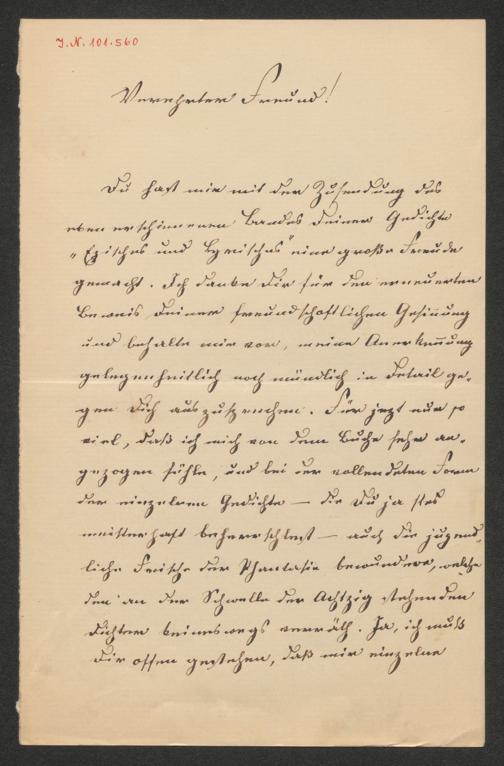 I. N. 101.560
Verehrter Freund!
Du hast mir mit der Zusendung des
eben erschienenen Bandes Deiner Gedichte
„Episches und Lyrisches" eine große Freude
gemacht. Ich danke Dir für den erneuerten
Beweis Deiner freundschaftlichen Gesinnung
und behalte mir vor, meine Anerkennung
gelegenheitlich noch mündlich in Detail ge-
gen Dich auszusprechen. Für jezt nur so
viel, daß ich mich von dem Buche sehr an-
gezogen fühle, und bei der vollendeten Form
der einzelnen Gedichte — die Du ja stets
meisterhaft beherrschtest — auch die jugend-
liche Frische der Phantasie bewundere, welche
den an der Schwelle der Achtzig stehenden
Dichter keineswegs verräth. Ja, ich muß
Dir offen gestehen, daß mir einzelne